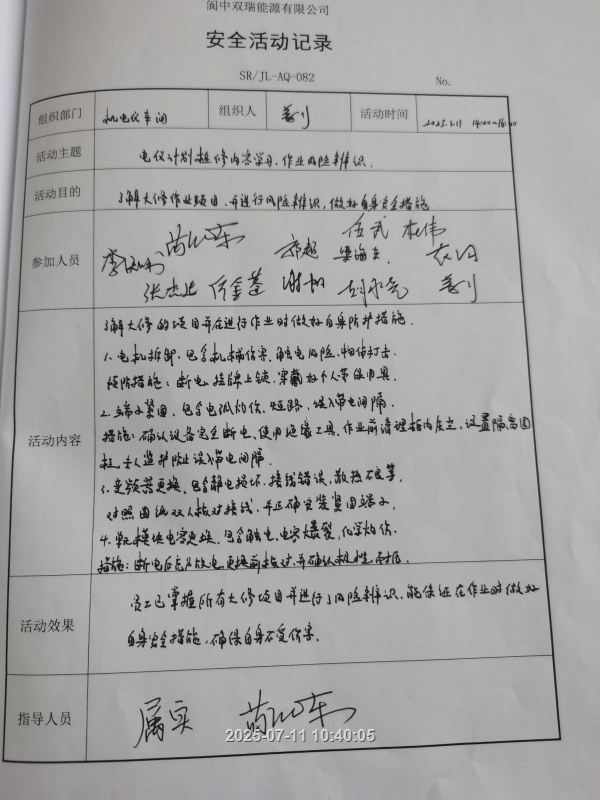 阆中双瑞能源有限公司
安全活动记录
SR/JL-AQ-082 No.
组织部门 机电仪车间 组织人 活动时间 2025.7.11
活动主题 电仪计划检修内容学习、作业风险辨识.
活动目的 了解大修作业项目,并进行风险辨识,做好自身安全措施
伍武 杜伟
参加人员 郭超 梁海
张杰 谢
活动内容
了解大修的项目并在进行作业时做好自身防护措施.
1、电机拆卸,包含机械伤害、触电风险、物体打击
预防措施:断电,挂牌上锁,穿戴好个人劳保用具.
2、端子紧固,包含电弧灼伤,短路,误入带电间隔
措施:确认设备完全断电、使用绝缘工具,作业前清理柜内灰尘,设置隔离围
栏,专人监护防止误入带电间隔.
3、变频器更换,包含静电损坏,接线错误,散热不良等.
对照图纸双人核对接线,并正确安装紧固端子.
4、单元模块电容更换,包含触电,电容爆裂,化学灼伤
措施:断电后充分放电,更换前核对,并确认极性
活动效果
员工已掌握所有大修项目并进行了风险辨识,能保证在作业时做好
自身安全措施,确保自身不受伤害.
指导人员 属实
2025-07-11 10:40:05